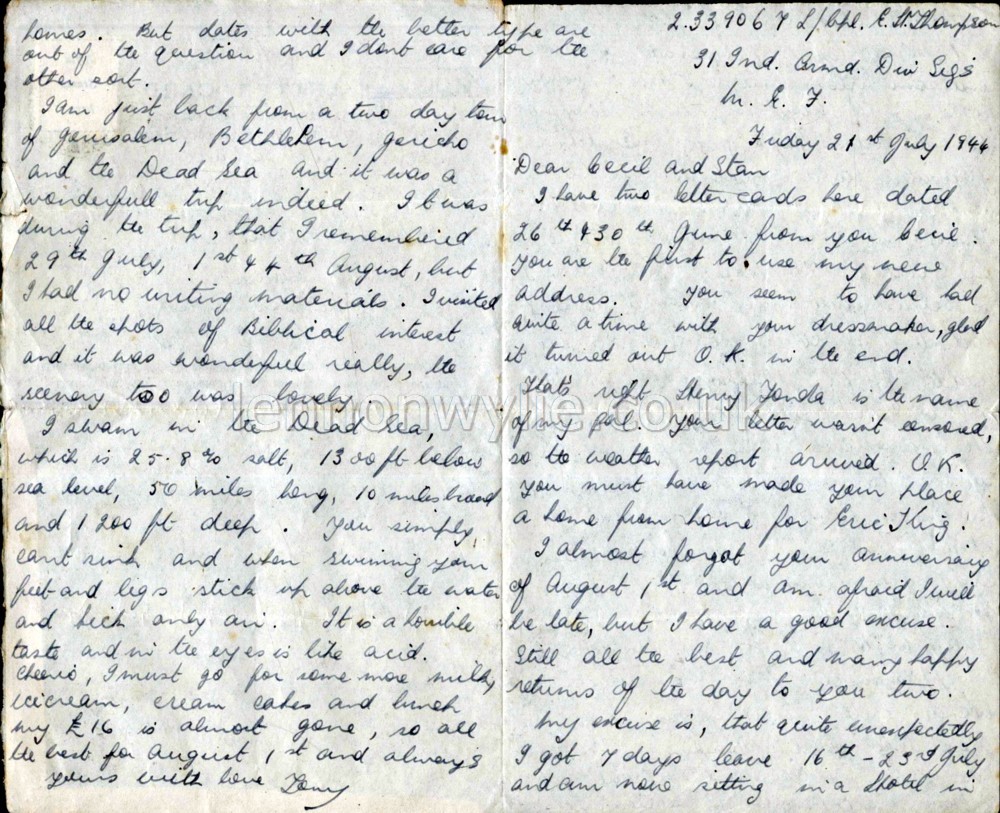 2339067 L/Cpl. E. St. Thompson
31 Ind. Armd. Div Sigs
M. E. F.
Friday 21st July 1944
Dear Cecil and Stan
I have two letter cards here dated
26th & 30th June from you Cecil.
You are the first to use my new
address. You seem to have had
quite a time with your dressmaker, glad
it turned out O.K. in the end.
That's right Henry Fonda is the name
of my pal. Your letter wasn't censored,
so the weather report arrived. O.K.
You must have made your place
a home from home for Eric King!
I almost forgot your anniversary
of August 1st and am afraid I will
be late, but I have a good excuse.
Still all the best and many happy
returns of the day to you two.
My excuse is, that quite unexpectedly
I got 7 days leave 16th - 23rd July
and am now sitting in a Hotel in
homes. But dates with the better type are
out of the question and I dont care for the
other sort.
I am just back from a two day tour
of Jerusalem, Bethlehem, Jericho
and the Dead Sea and it was a
wonderfull trip indeed. It was
during the trip, that I remembered
29th July, 1st & 4th August, but
I had no writing materials. I visited
all the spots of Biblical interest
and it was wonderful really, the
scenery too was lovely.
I swam in the Dead Sea,
which is 25.8% salt, 1300 ft below
sea level, 50 miles long, 10 miles broad
and 1200 ft deep. You simply
cant sink and when swimming your
feet and legs stick up above the water
and kick only air. It is a horrible
taste and in the eyes is like acid.
Cheerio, I must go for some more milky
icicream, cream cakes and lunch
my £16 is almost gone, so all
the best for August 1st and always
yours with love Tommy
lennonwylie.co.uk